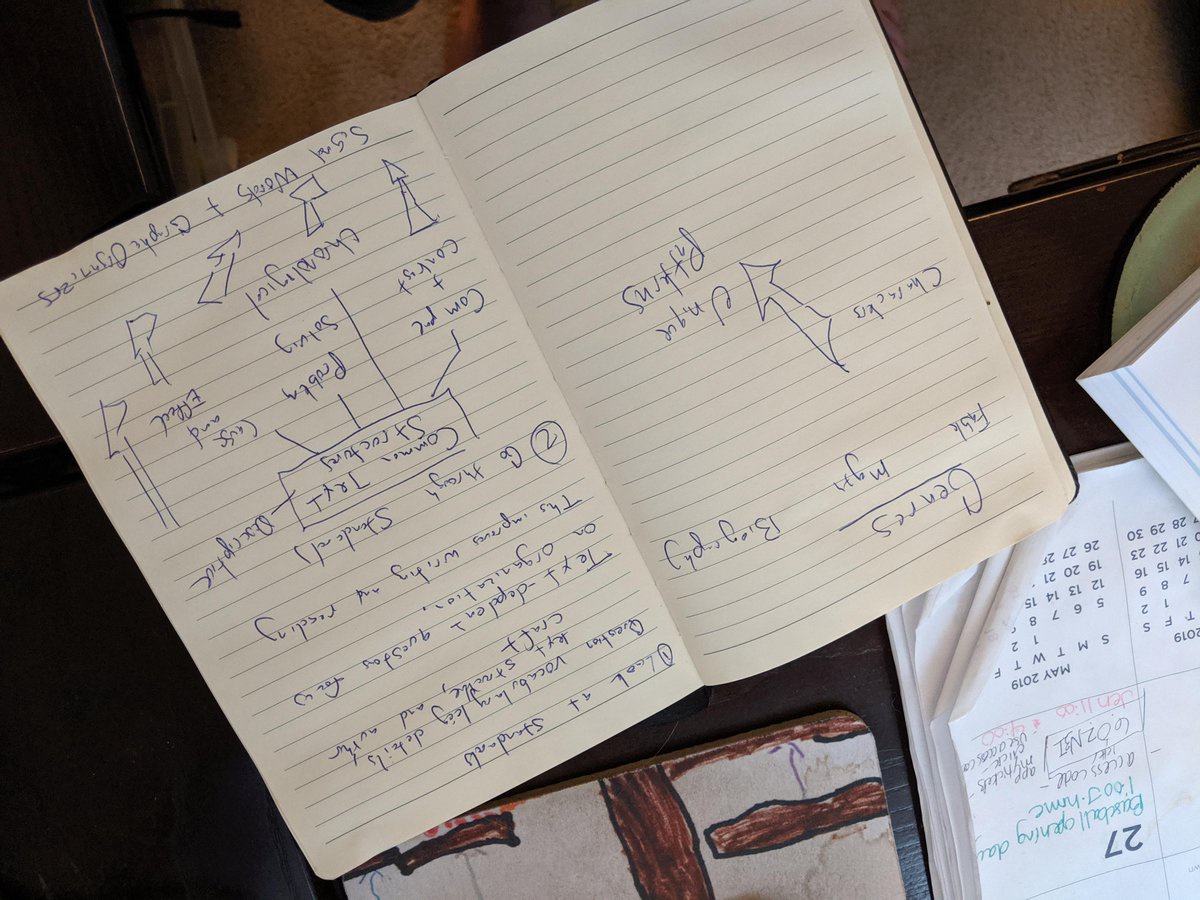 ① Look at standards
Question vocabulary, key details
text structure, and author
craft
Text-depedent questions focus
on organization.
This improves writing and reading
② Go through Standards
Common Text
Structures
Descriptive
Cause
and
Effect
Problem
Solving
Chronological
Compare
+
Contrast
Signal Words + Graphic Organizers
Genres
Biography
Myth
Fable
Characters
Unique
Patterns
27
Baseball opening day
1:00 J-home
access code -
MAY 2019
S M T W T F
1 2
5 6 7 8
12 13 14 15
19 20 21
T F S
1 2
7 8 9
14 15 16
20 21 22 23
28 29 30